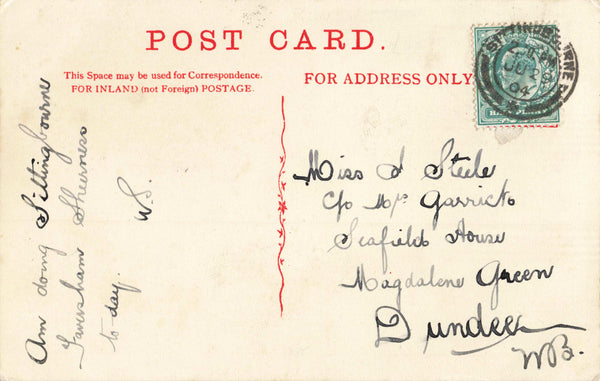 POST CARD.
This Space may be used for Correspondence.
FOR INLAND (not Foreign) POSTAGE.
FOR ADDRESS ONLY
Am doing Sittingbourne
Faversham Sheerness
to-day.
W.S.
Miss J Steele
C/o Mrs Garrick
Seafield House
Magdalene Green
Dundee
N.B.
SITTINGBOURNE
JU 2
04